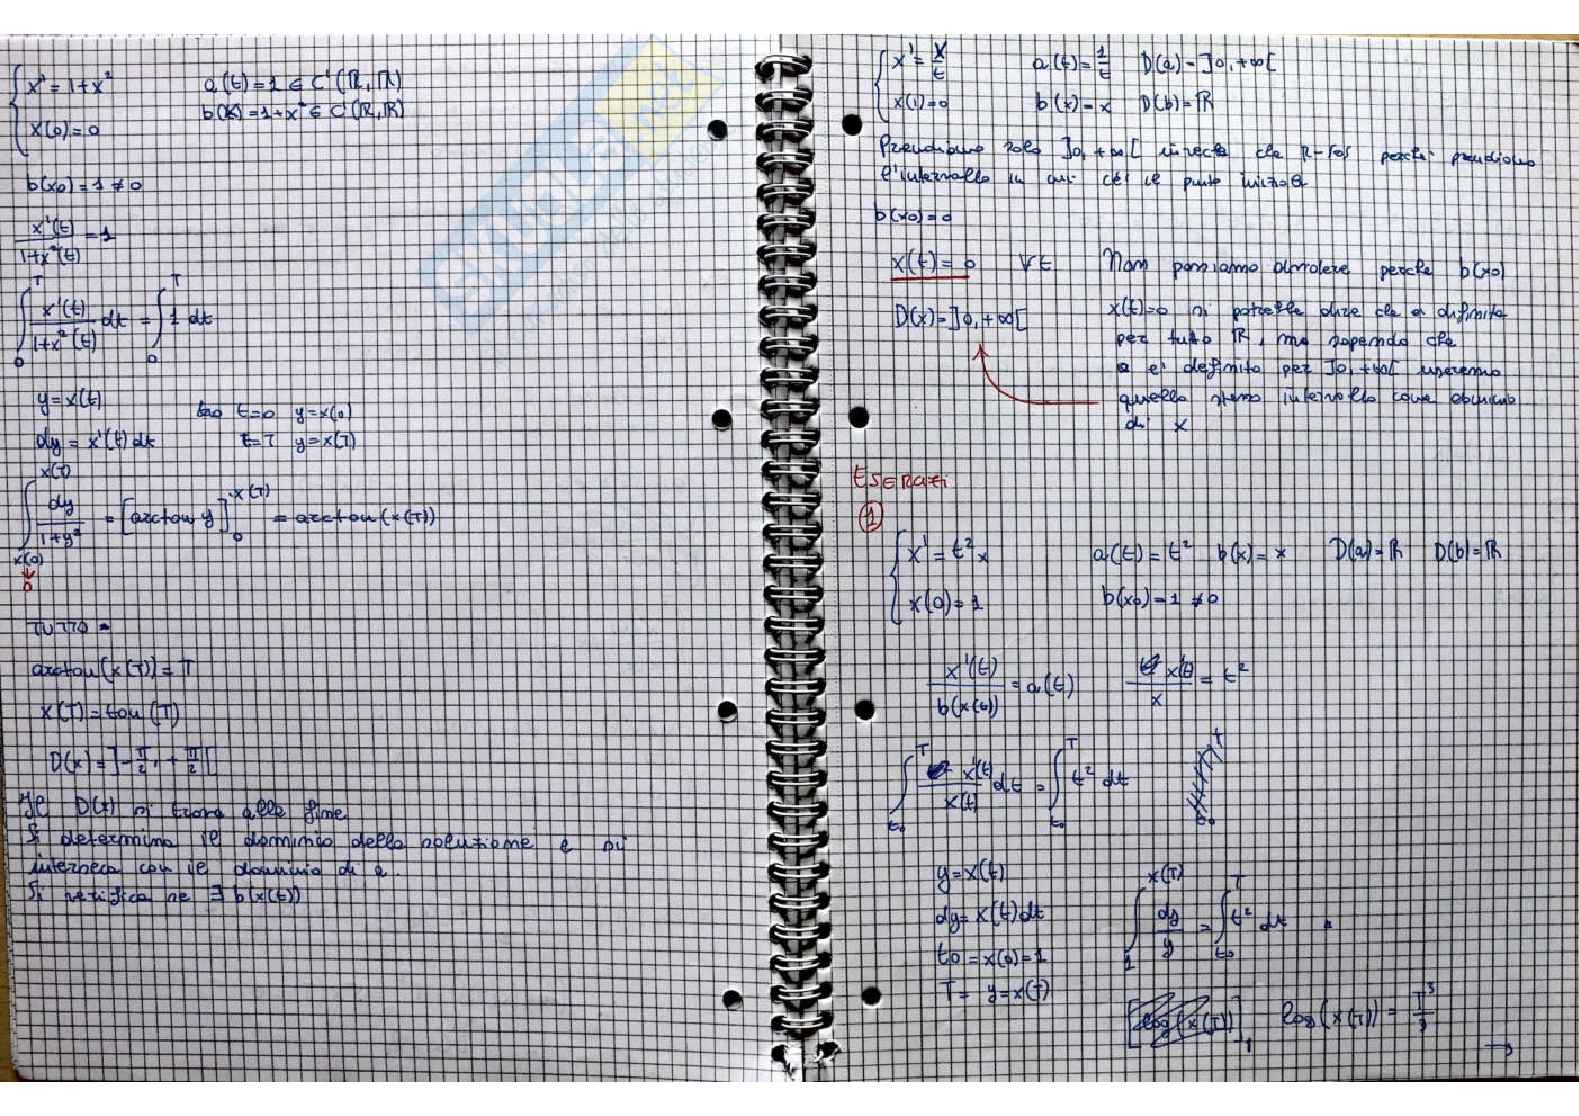 x' = 1+x²
x(0)=0
a(t)=1 ∈ C¹(ℝ,ℝ)
b(x)=1+x² ∈ C¹(ℝ,ℝ)
b(x0)=1≠0
x'(t)/(1+x²(t)) = 1
∫₀ᵀ x'(t)/(1+x²(t)) dt = ∫₀ᵀ 1 dt
y=x(t) t=0 y=x(0)
dy = x'(t)dt t=T y=x(T)
∫_{x(0)}^{x(T)} dy/(1+y²) = [arctan y]₀^{x(T)} = arctan(x(T))
0
TUTTO
arctan(x(T))=T
x(T)=tan(T)
D(x)=]-π/2,+π/2[
Il D(x) si trova alla fine
Si determina il dominio della soluzione e si
interseca con il dominio di a.
Si verifica se ∃ b(x(t))
x'=x/t a(t)=1/t D(a)=]0,+∞[
x(1)=0 b(x)=x D(b)=ℝ
Prendiamo solo ]0,+∞[ invece che perché prendiamo
l'intervallo in cui c'è il punto iniziale
b(x0)=0
x(t)=0 ∀t Non possiamo dividere perché b(x0)
D(x)=]0,+∞[ x(t)=0 si potrebbe dire che è definita
per tutto ℝ, ma sapendo che
a è definito per ]0,+∞[ useremo
quello stesso intervallo come dominio
di x
Esercizi
1
x'=t²x a(t)=t² b(x)=x D(a)=ℝ D(b)=ℝ
x(0)=1 b(x0)=1≠0
x'(t)/b(x(t)) = a(t) x'(t)/x = t²
∫_{t0}^{T} x'(t)/x(t) dt = ∫_{t0}^{T} t² dt
y=x(t)
dy=x(t)dt ∫₁^{x(T)} dy/y = ∫_{t0}^{T} t² dt
t0=x(0)=1
T= y=x(T)
log(x(T)) = T³/3
→